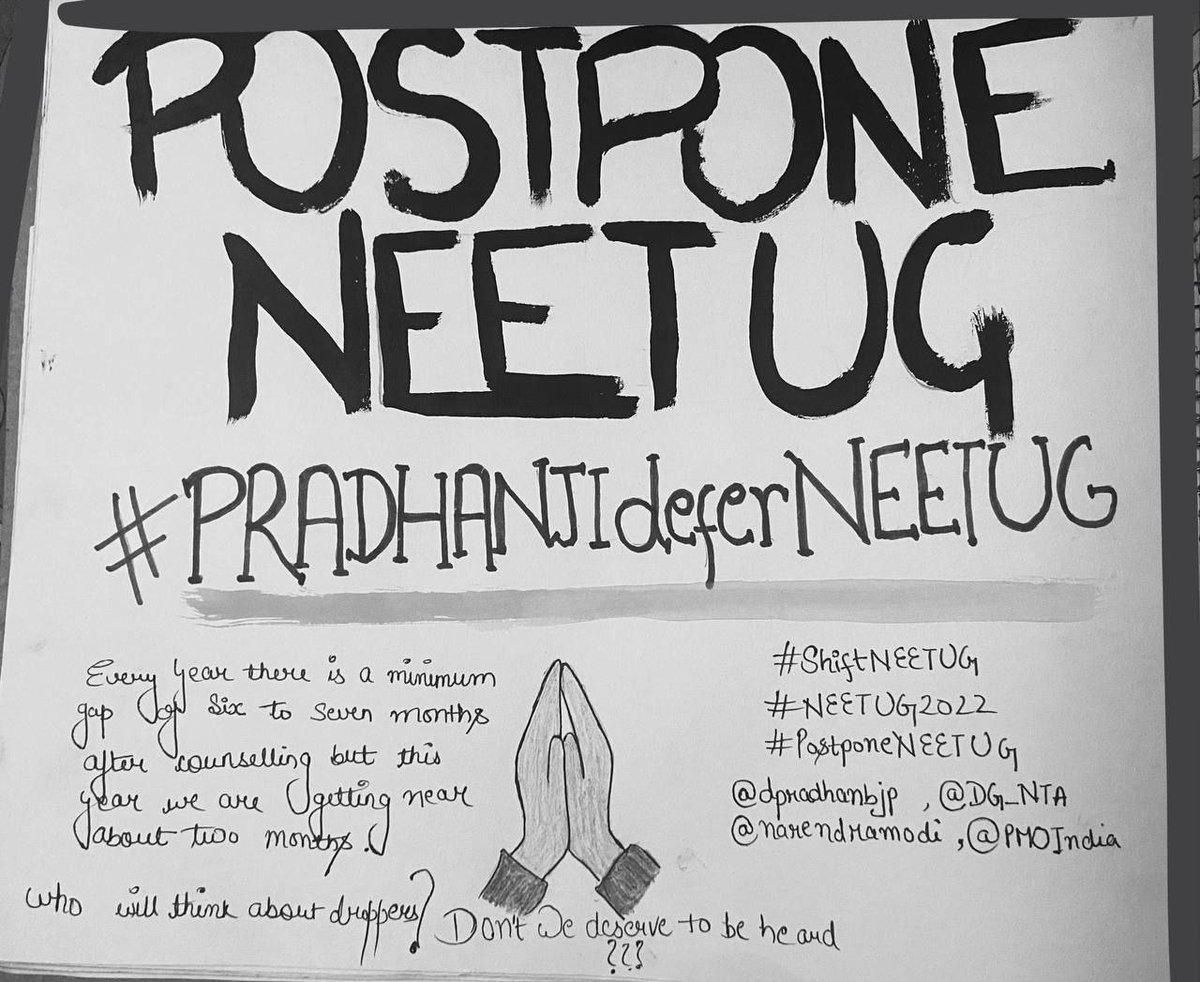 POSTPONE
NEET UG
#PRADHANJIdeferNEETUG
Every year there is a minimum
gap of six to seven months
after counselling but this
year we are getting near
about two months.
who will think about droppers?
Don't we deserve to be heard
???
#ShiftNEETUG
#NEETUG2022
#PostponeNEETUG
@dpradhanbjp , @DG_NTA
@narendramodi , @PMOIndia